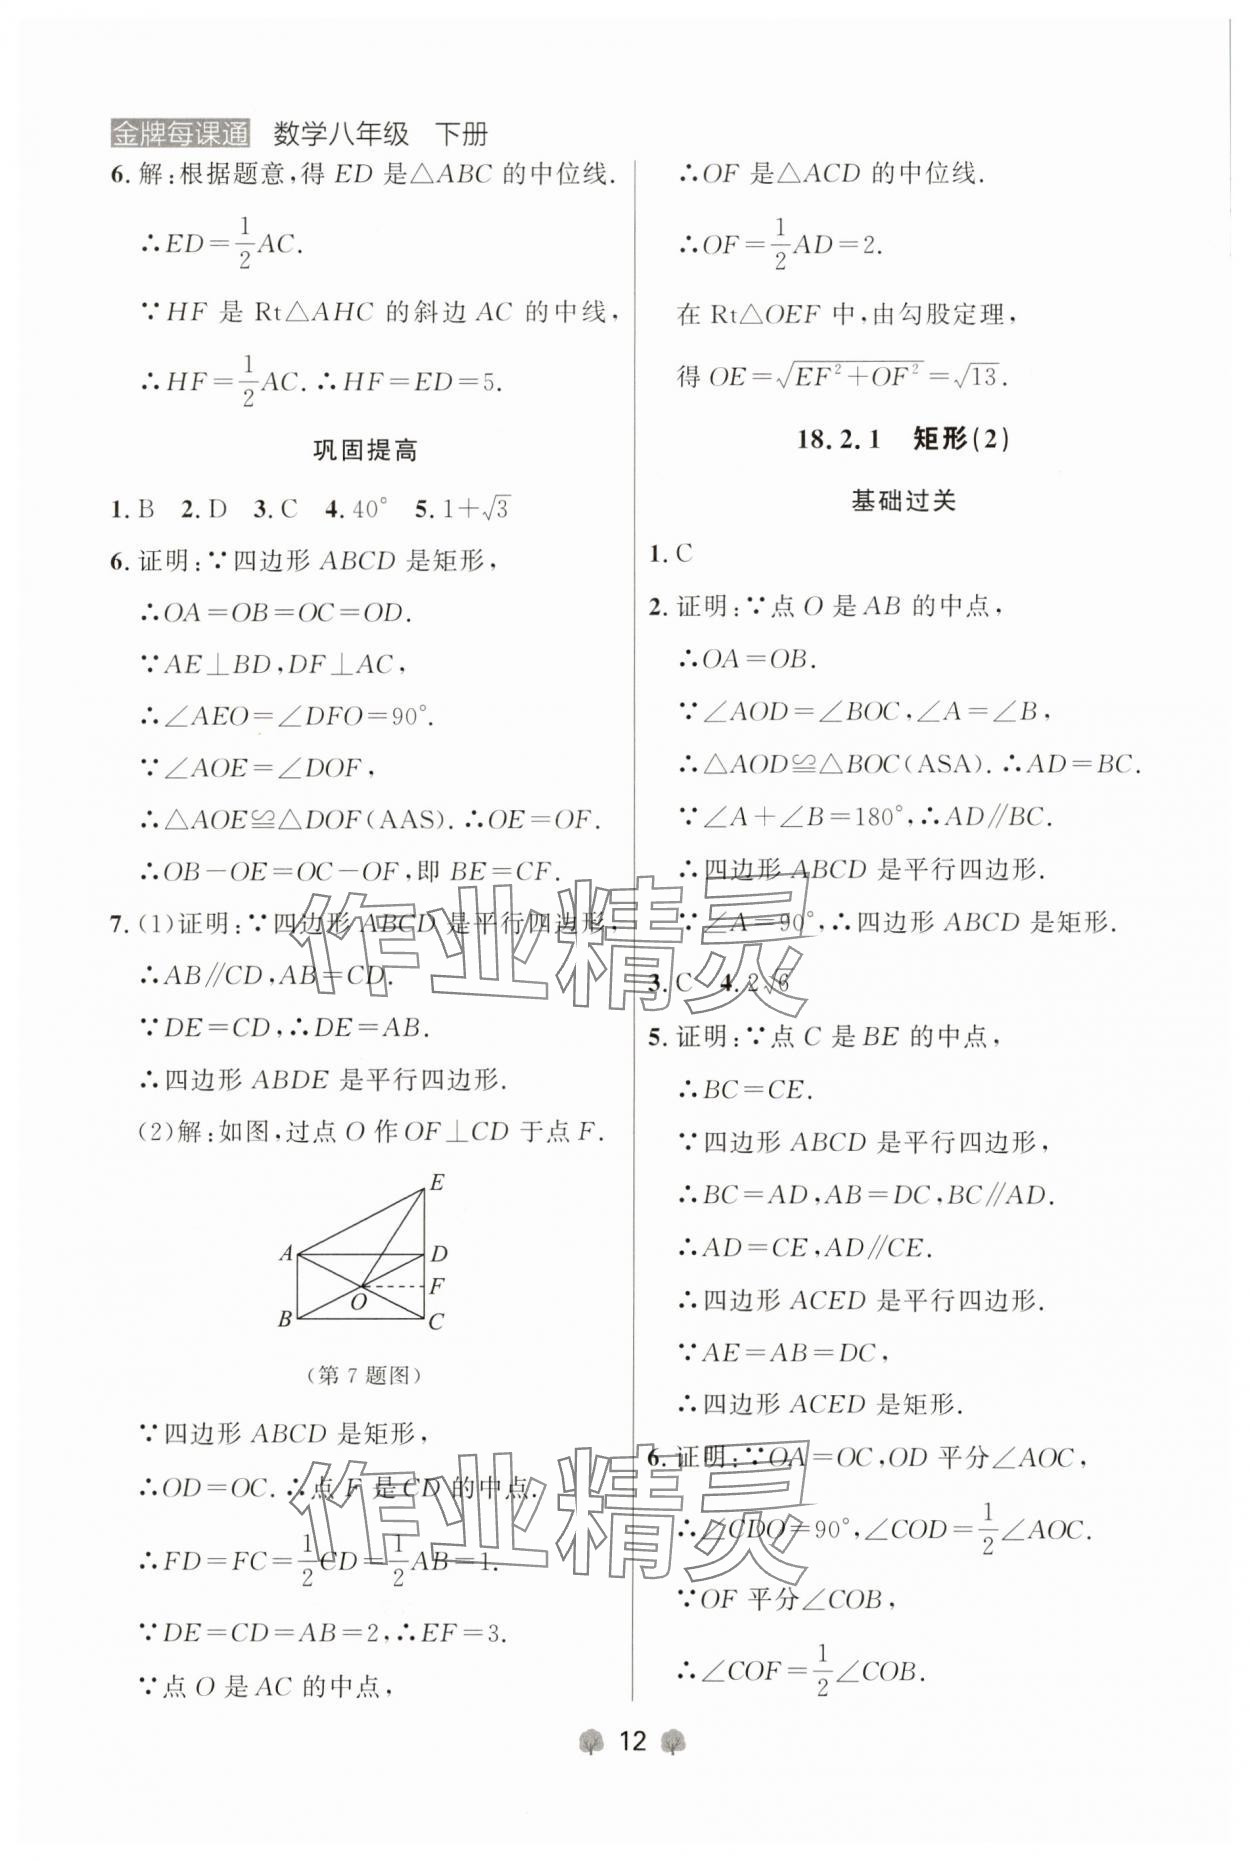 金牌每课通 数学八年级 下册
6. 解:根据题意,得 ED 是△ABC 的中位线.
∴ED=1/2AC.
∵HF 是 Rt△AHC 的斜边 AC 的中线,
∴HF=1/2AC.∴HF=ED=5.
巩固提高
1. B 2. D 3. C 4. 40° 5. 1+√3
6. 证明:∵四边形 ABCD 是矩形,
∴OA=OB=OC=OD.
∵AE⊥BD,DF⊥AC,
∴∠AEO=∠DFO=90°.
∵∠AOE=∠DOF,
∴△AOE≌△DOF(AAS).∴OE=OF.
∴OB-OE=OC-OF,即 BE=CF.
7. (1)证明:∵四边形 ABCD 是平行四边形,
∴AB∥CD,AB=CD.
∵DE=CD,∴DE=AB.
∴四边形 ABDE 是平行四边形.
(2)解:如图,过点 O 作 OF⊥CD 于点 F.
E
A D
F
O
B C
(第 7 题图)
∵四边形 ABCD 是矩形,
∴OD=OC.∴点 F 是 CD 的中点.
∴FD=FC=1/2CD=1/2AB=1.
∵DE=CD=AB=2,∴EF=3.
∵点 O 是 AC 的中点,
∴OF 是△ACD 的中位线.
∴OF=1/2AD=2.
在 Rt△OEF 中,由勾股定理,
得 OE=√(EF²+OF²)=√13.
18.2.1 矩形(2)
基础过关
1. C
2. 证明:∵点 O 是 AB 的中点,
∴OA=OB.
∵∠AOD=∠BOC,∠A=∠B,
∴△AOD≌△BOC(ASA).∴AD=BC.
∵∠A+∠B=180°,∴AD∥BC.
∴四边形 ABCD 是平行四边形.
∵∠A=90°,∴四边形 ABCD 是矩形.
3. C 4. 2√6
5. 证明:∵点 C 是 BE 的中点,
∴BC=CE.
∵四边形 ABCD 是平行四边形,
∴BC=AD,AB=DC,BC∥AD.
∴AD=CE,AD∥CE.
∴四边形 ACED 是平行四边形.
∵AE=AB=DC,
∴四边形 ACED 是矩形.
6. 证明:∵OA=OC,OD 平分∠AOC,
∴∠CDO=90°,∠COD=1/2∠AOC.
∵OF 平分∠COB,
∴∠COF=1/2∠COB.
12
作业精灵
作业精灵